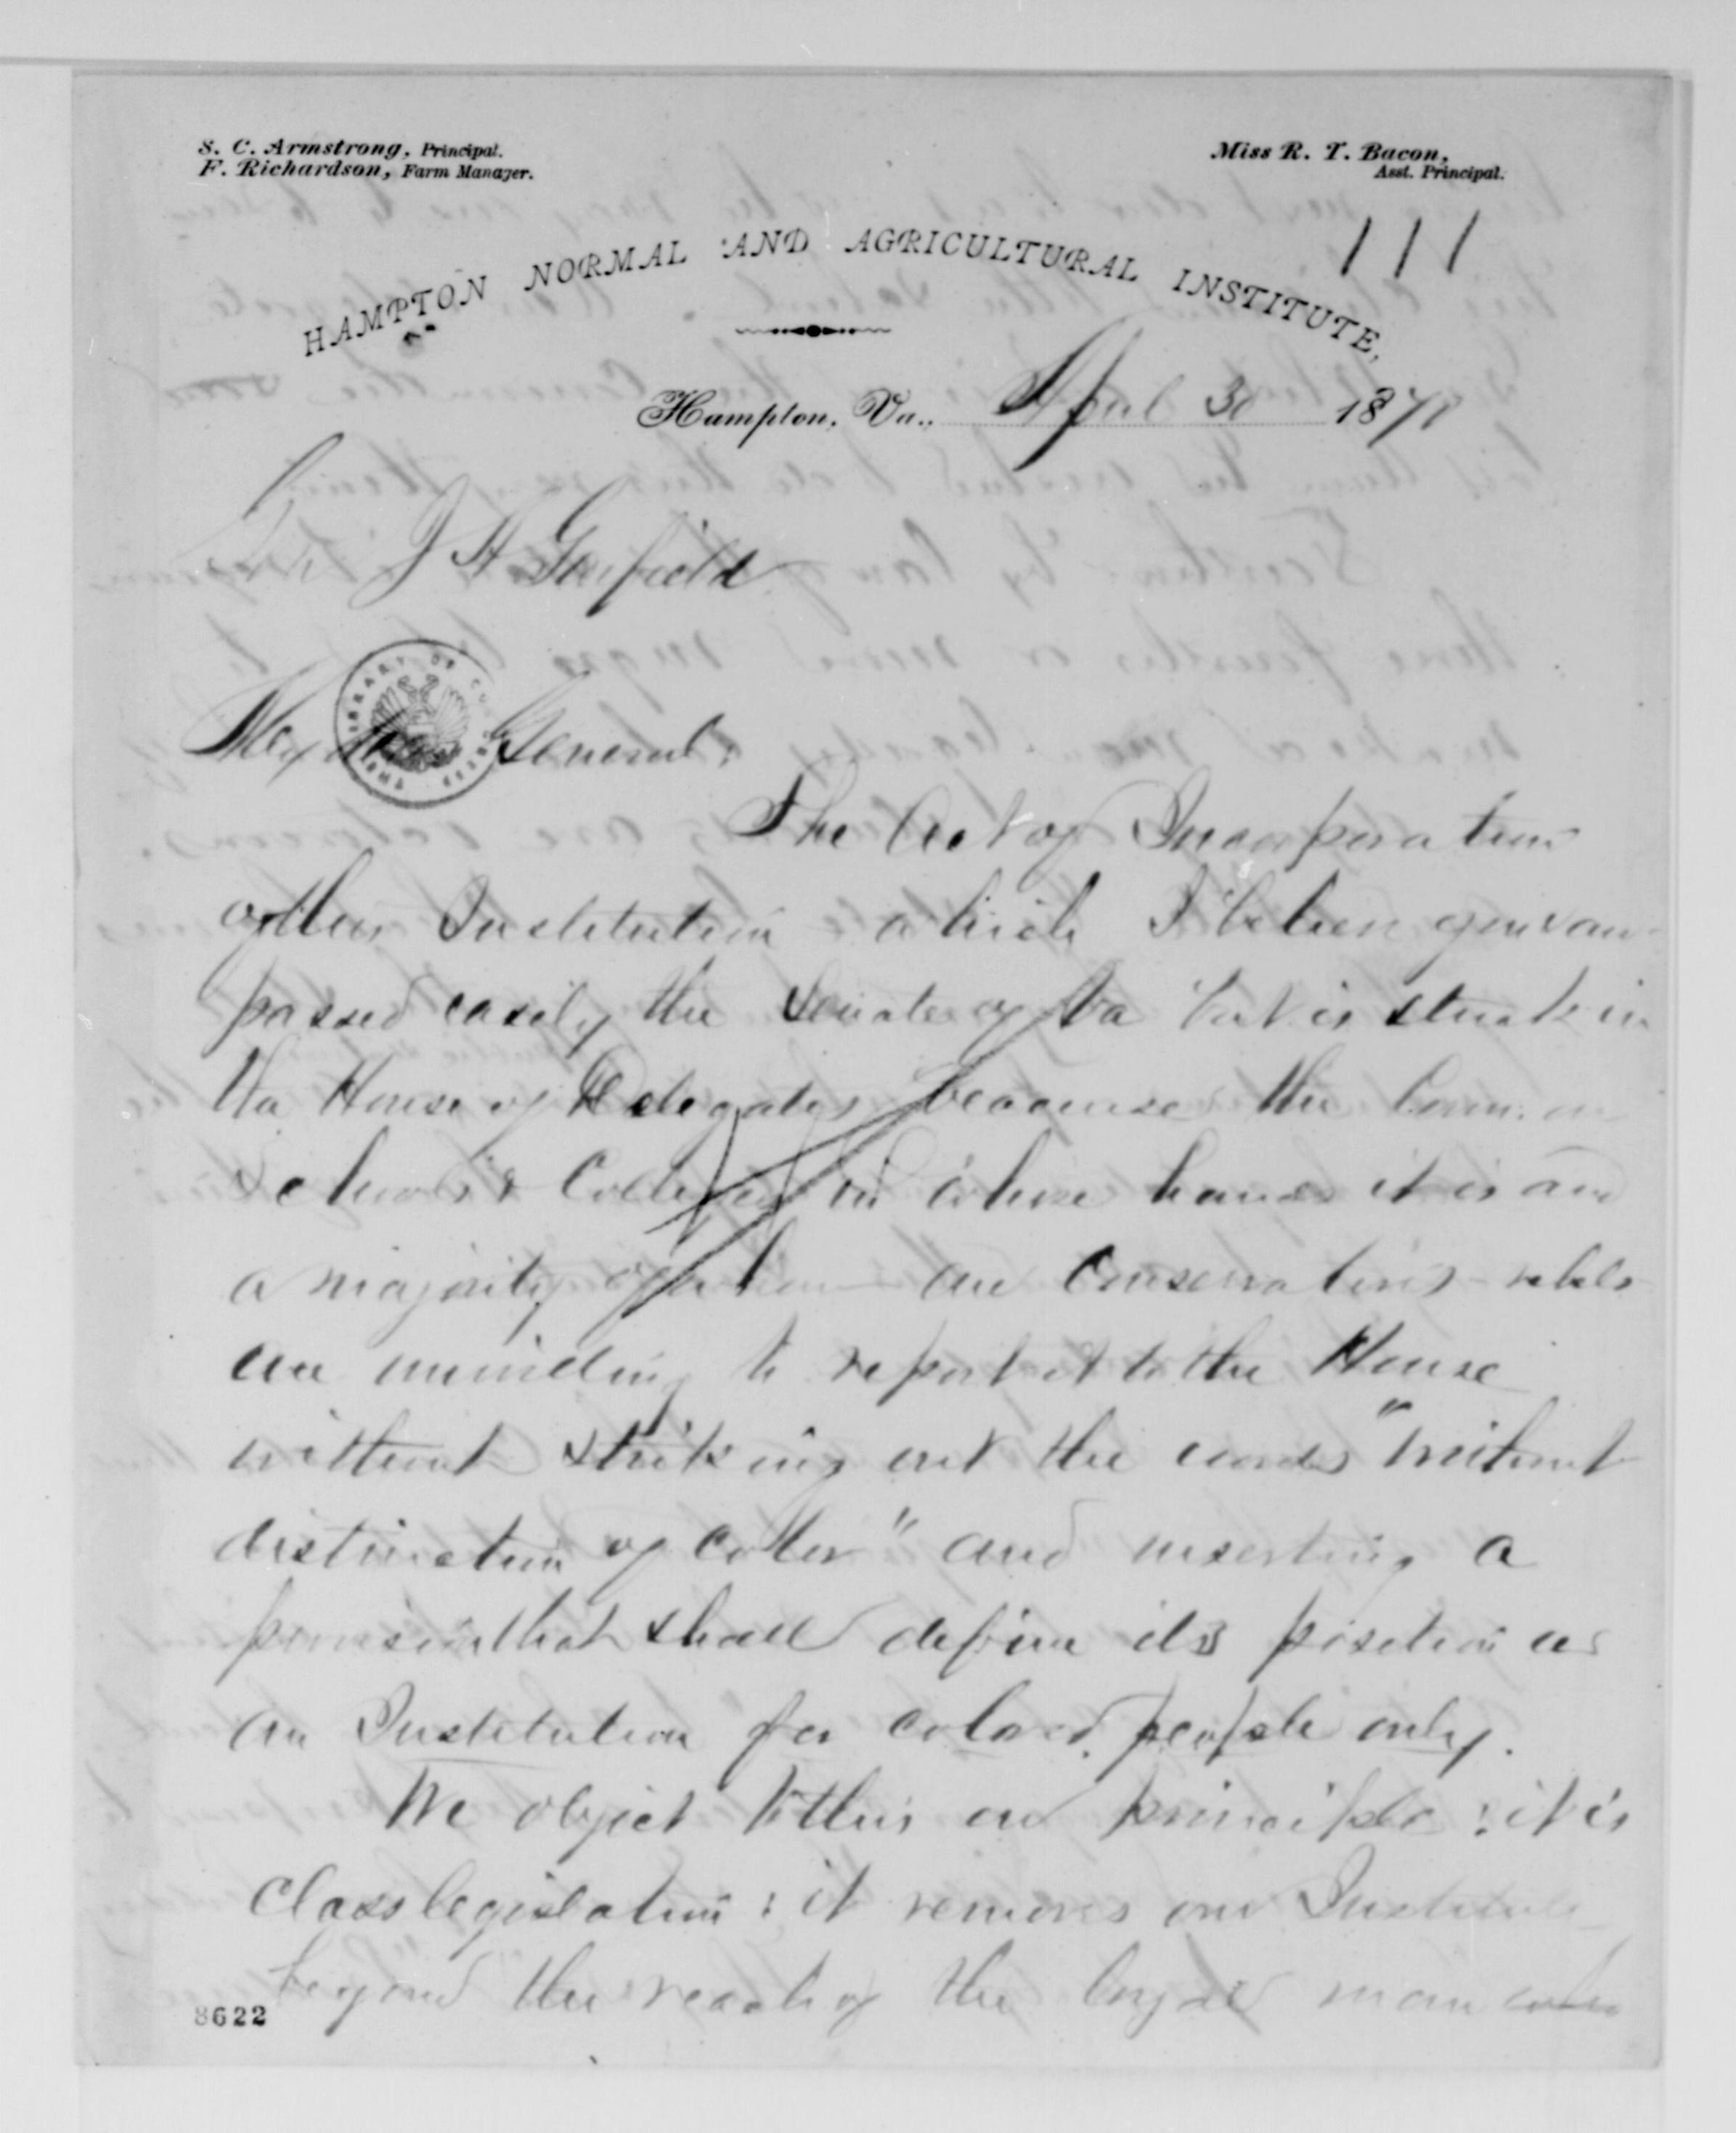 S. C. Armstrong, Principal.
F. Richardson, Farm Manager.
Miss R. T. Bacon,
Asst. Principal.
111
HAMPTON NORMAL AND AGRICULTURAL INSTITUTE,
Hampton, Va., April 30 1870
Gen J H Garfield
LIBRARY OF CONGRESS
My dear General:
The Act of Incorporation
of this Institution which I believe you saw
passed easily the Senate of Va but is stuck in
the House of Delegates because the Comm. on
Schools & Colleges in whose hands it is and
a majority of whom are Conservatives - rebels
are unwilling to report it to the House
without striking out the words "without
distinction of color" and inserting a
provision that shall define its position as
an Institution for colored people only.
We object to this on principle: it is
class legislation: it removes our Institute
beyond the reach of the loyal man who
8622